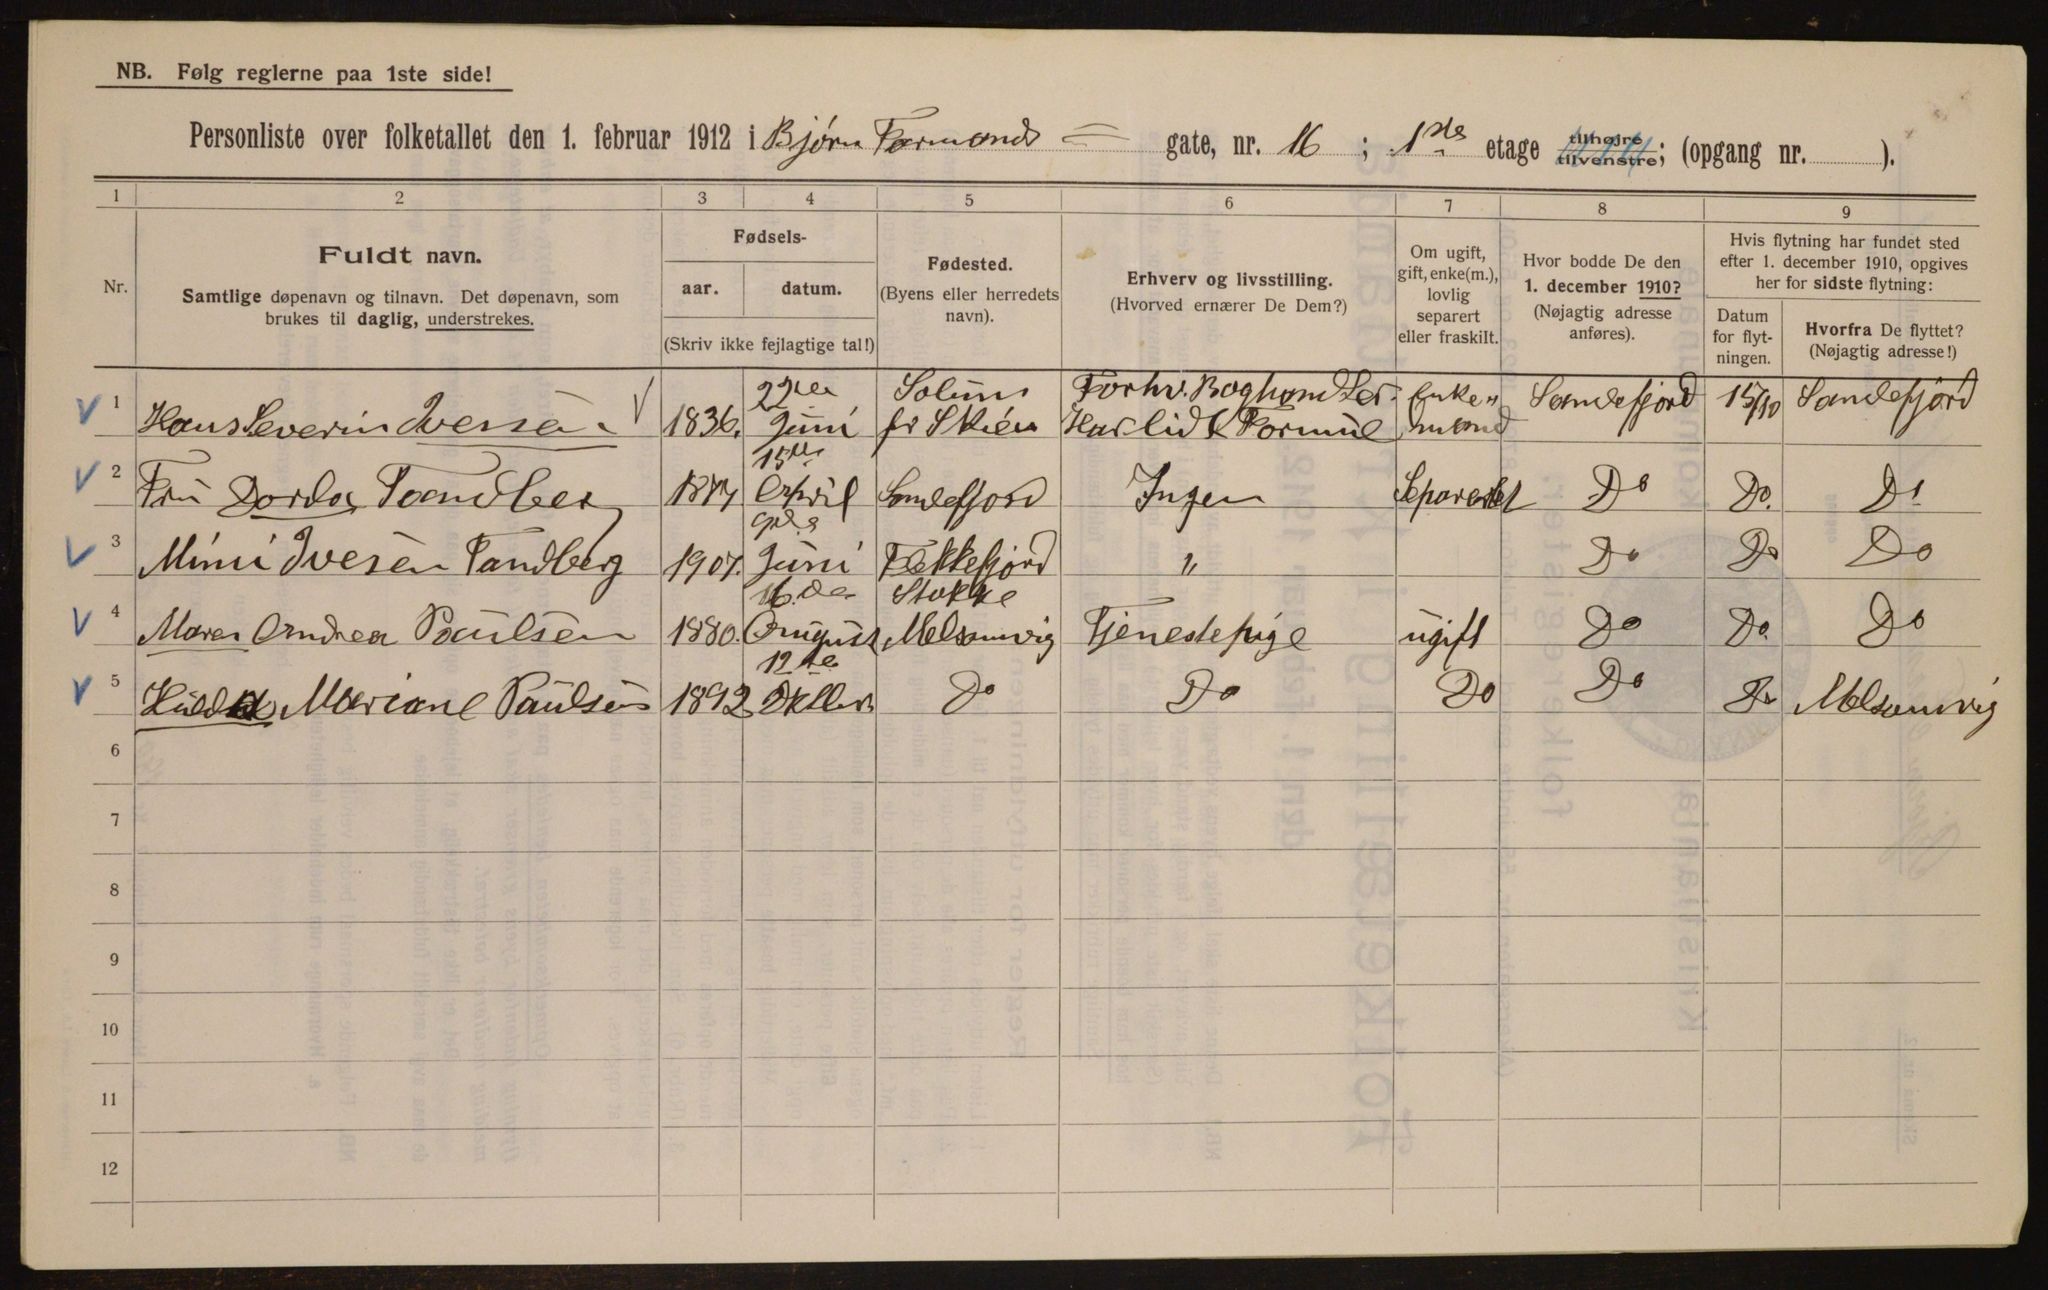 NB. Følg reglerne paa 1ste side!
Personliste over folketallet den 1. februar 1912 i Bjørn Farmands gate, nr. 16 ; 1ste etage tilhøjre tilvenstre; (opgang nr. ).
1 2 3 4 5 6 7 8 9
Nr.
Fuldt navn.
Samtlige døpenavn og tilnavn. Det døpenavn, som
brukes til daglig, understrekes.
Fødsels-
aar. datum.
(Skriv ikke fejlagtige tal!)
Fødested.
(Byens eller herredets
navn).
Erhverv og livsstilling.
(Hvorved ernærer De Dem?)
Om ugift,
gift, enke(m.),
lovlig
separert
eller fraskilt.
Hvor bodde De den
1. december 1910?
(Nøjagtig adresse
anføres).
Hvis flytning har fundet sted
efter 1. december 1910, opgives
her for sidste flytning:
Datum
for flyt-
ningen.
Hvorfra De flyttet?
(Nøjagtig adresse!)
1 Hans Severin Ivessen 1836. 22de Juni Solum pr Skien Forhv. Boghandler. Har lidt Formue Enke„ mand Sandefjord 15/10 Sandefjord
2 Fru Dordea Tandberg 1877 15de April Sandefjord Ingen Separeret Do Do. Do
3 Mimi Ivesen Tandberg 1907. Juni Fækkefjord „ Do Do Do
4 Maren Andrea Paulsen 1880. 16.de August Stokke Melsomvig Tjenestepige ugift Do Do. Do
5 Hilda Mariane Paulsen 1892 12te Oktbr. Do Do Do Do Do Melsomvig
6
7
8
9
10
11
12